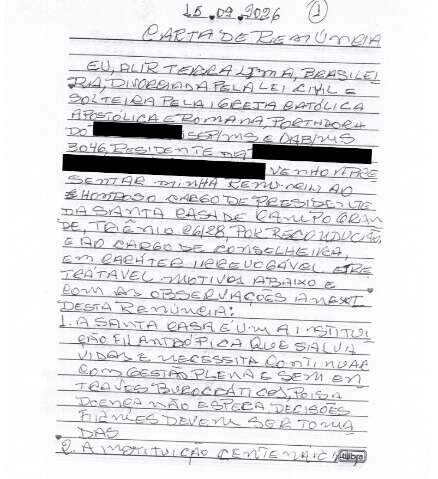 15.09.2026 1
CARTA DE RENÚNCIA
EU, ALIR TERRA LIMA, BRASILEI
RA, DIVORCIADA PELA LEI CIVIL E
SOLTEIRA PELA IGREJA CATÓLICA
APOSTÓLICA E ROMANA, PORTADORA
DO SSP/MS E OAB/MS
3046, RESIDENTE NA
VENHO APRE
SENTAR MINHA RENÚNCIA AO
HONROSO CARGO DE PRESIDENTE
DA SANTA CASA DE CAMPO GRAN
DE, TRIÊNIO 26/28, POR RECONDUCÃO,
E AO CARGO DE CONSELHEIRA,
EM CARÁTER IRREVOGÁVEL E IRRE
TRATÁVEL MOTIVOS ABAIXO E
COM AS OBSERVAÇÕES
DESTA RENÚNCIA:
1. A SANTA CASA É UMA INSTITUI
ÇÃO FILANTRÓPICA QUE SALVA
VIDAS E NECESSITA CONTINUAR
COM GESTÃO PLENA E SEM EN
TRAVES BUROCRÁTICOS, POIS A
DOENÇA NÃO ESPERA, DECISÕES
FIRMES DEVEM SER TOMA
DAS
2. A INSTITUIÇÃO CENTENÁRIA